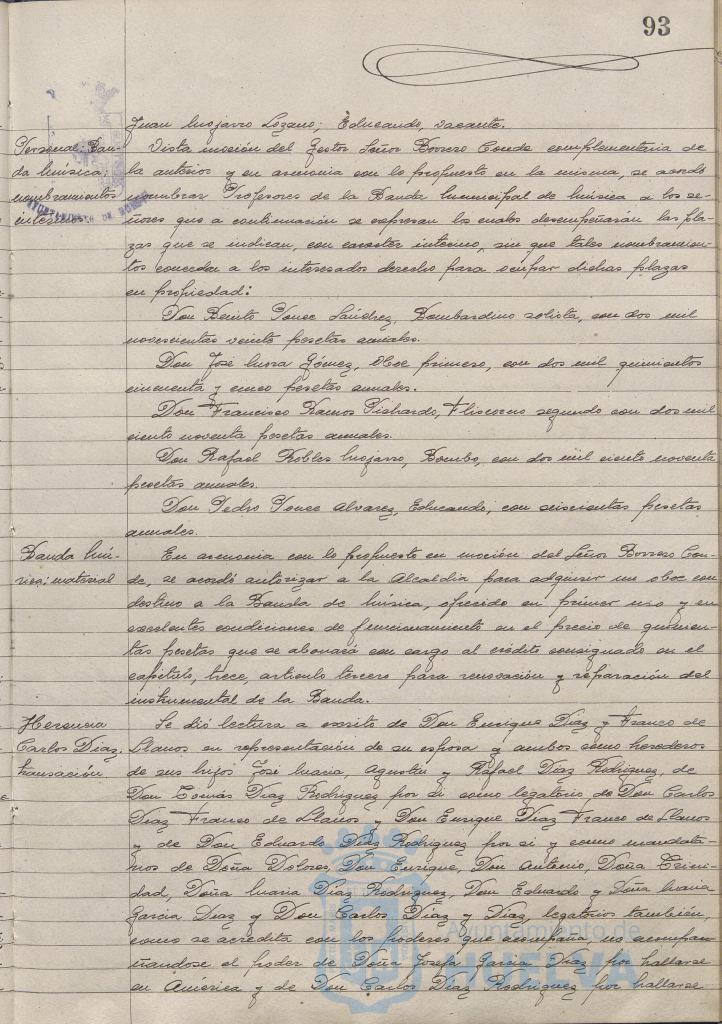 93
Juan Mojarro Lozano; Educando, vacante.
Personal: Ban-
da música:
nombramientos
interinos.
Vista moción del Gestor Señor Borrero Conde complementaria de
la anterior y en armonia con lo propuesto en la misma, se acordó
nombrar Profesores de la Banda Municipal de Música a los se-
ñores que a continuación se expresan los cuales desempeñarán las pla-
zas que se indican, con caracter interino, sin que tales nombramien-
tos concedan a los interesados derecho para ocupar dichas plazas
en propiedad:
Don Benito Ponce Sánchez, Bombardino solista, con dos mil
novecientas veinte pesetas anuales.
Don José Mora Gómez, Oboe primero, con dos mil quinientos
cincuenta y cinco pesetas anuales.
Don Francisco Ramos Pichardo, Fliscorno segundo con dos mil
ciento noventa pesetas anuales.
Don Rafael Robles Mojarro, Bombo, con dos mil ciento noventa
pesetas anuales.
Don Pedro Ponce Alvarez, Educando, con seiscientas pesetas
anuales.
Banda Mú-
sica: material
En armonia con lo propuesto en moción del Señor Borrero Con-
de, se acordó autorizar a la Alcaldia para adquirir un oboe con
destino a la Banda de Música, ofrecido en primer uso y en
excelentes condiciones de funcionamiento en el precio de quinien-
tas pesetas que se abonará con cargo al crédito consignado en el
capitulo, trece, articulo tercero para renovación y reparación del
instrumental de la Banda.
Herencia
Carlos Diaz,
transación
Se dió lectura a escrito de Don Enrique Diaz y Franco de
Llanos en representación de su esposa y ambos como herederos
de sus hijos José Maria, Agustin y Rafael Diaz Rodriguez, de
Don Tomás Diaz Rodriguez por si como legatario de Don Carlos
Diaz Franco de Llanos y Don Enrique Diaz Franco de Llanos
y de Don Eduardo Diaz Rodriguez por si y como mandata-
rios de Doña Dolores, Don Enrique, Don Antonio, Doña Trini-
dad, Doña Maria Diaz Rodriguez, Don Eduardo y Doña Maria
Garcia Diaz y Don Carlos Diaz y Diaz, legatarios también,
como se acredita con los poderes que acompaña, no acompa-
ñandose el poder de Doña Josefa Garcia Diaz por hallarse
en América y de Don Carlos Diaz Rodriguez por hallarse
Ayuntamiento de
HUELVA